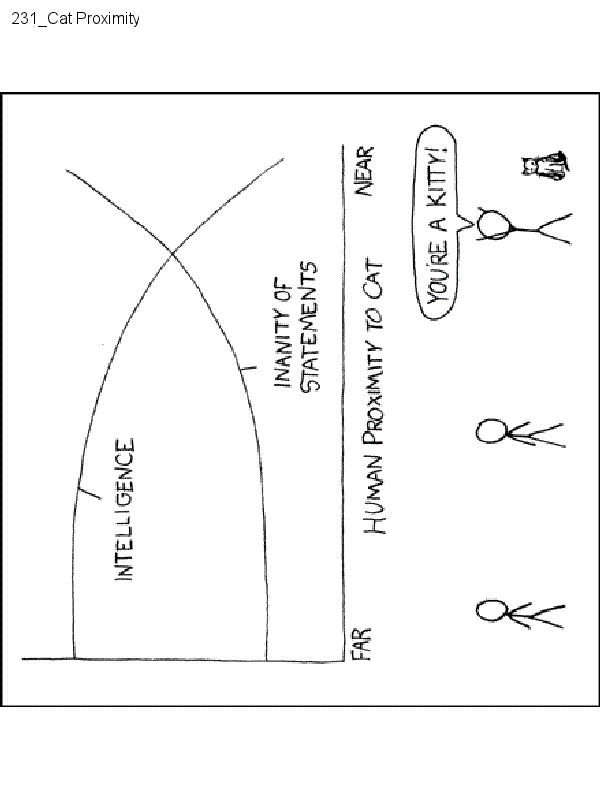 231_Cat Proximity
INTELLIGENCE
INANITY OF
STATEMENTS
FAR
NEAR
HUMAN PROXIMITY TO CAT
YOU'RE A KITTY!